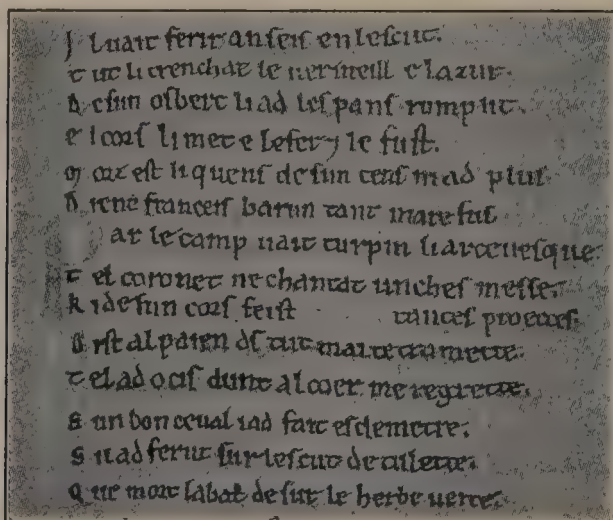 J luait ferir anseis en lescut.
T ut li trenchat le uermeill e lazur.
D esun osberc li ad les pans rumput.
E l cors li met e le fer 7 le fust.
M orz est li quens de sun tens ni ad plus
D ient franceis barun tant mare fus
ar le camp uait turpin li arceuesque.
T el coronet ne chantat unches messe.
K i de sun cors feist tantes proecces.
D ist al paien ds tut mal te tramette.
T el ad ocis dunt al coer me regrette.
S un bon ceual i ad fait esdemetre.
S ilad ferut sur lescut de tulette.
Q ue mort labat de sur le herbe uerte.